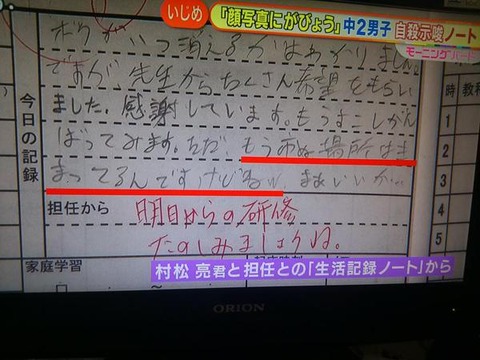 いじめ
「顔写真にがびょう」中2男子 自殺示唆ノート
ボクがいつ消えるかはわかりません
ですが、先生からたくさん希望をもらい
ました、感謝しています。もうすこしがん
ばってみます。ただ、もう市ぬ場所はき
まってるんですけどねw まあいいか…
今日の記録
担任から
明日からの研修
たのしみましょうね。
家庭学習
時 教科
1
2
3
4
5
村松 亮君と担任との「生活記録ノート」から
ORION